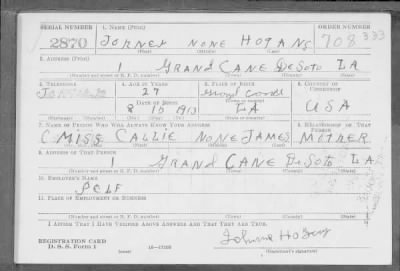 SERIAL NUMBER 1. NAME (Print) ORDER NUMBER
2870 JOHNEY NONE HOGANS 708 333
(First) (Middle) (Last)
2. ADDRESS (Print)
1 GRAND CANE DESOTO LA
(Number and street or R. F. D. number) (Town) (County) (State)
3. TELEPHONE 4. AGE IN YEARS 5. PLACE OF BIRTH 6. COUNTRY OF CITIZENSHIP
27 Grand Cane
DATE OF BIRTH
8 10 1913 LA USA
(Mo.) (Day) (Yr.)
7. NAME OF PERSON WHO WILL ALWAYS KNOW YOUR ADDRESS 8. RELATIONSHIP OF THAT PERSON
(MISS CALLIE NONE JAMES MOTHER
(Mr., Mrs., Miss) (First) (Middle) (Last)
9. ADDRESS OF THAT PERSON
1 GRAND CANE DESOTO LA
(Number and street or R. F. D. number) (Town) (County) (State)
10. EMPLOYER'S NAME
SELF
11. PLACE OF EMPLOYMENT OR BUSINESS
(Number and street or R. F. D. number) (Town) (County) (State)
I AFFIRM THAT I HAVE VERIFIED ABOVE ANSWERS AND THAT THEY ARE TRUE.
REGISTRATION CARD
D. S. S. Form 1 (over) 16-17105 (Registrant's signature)